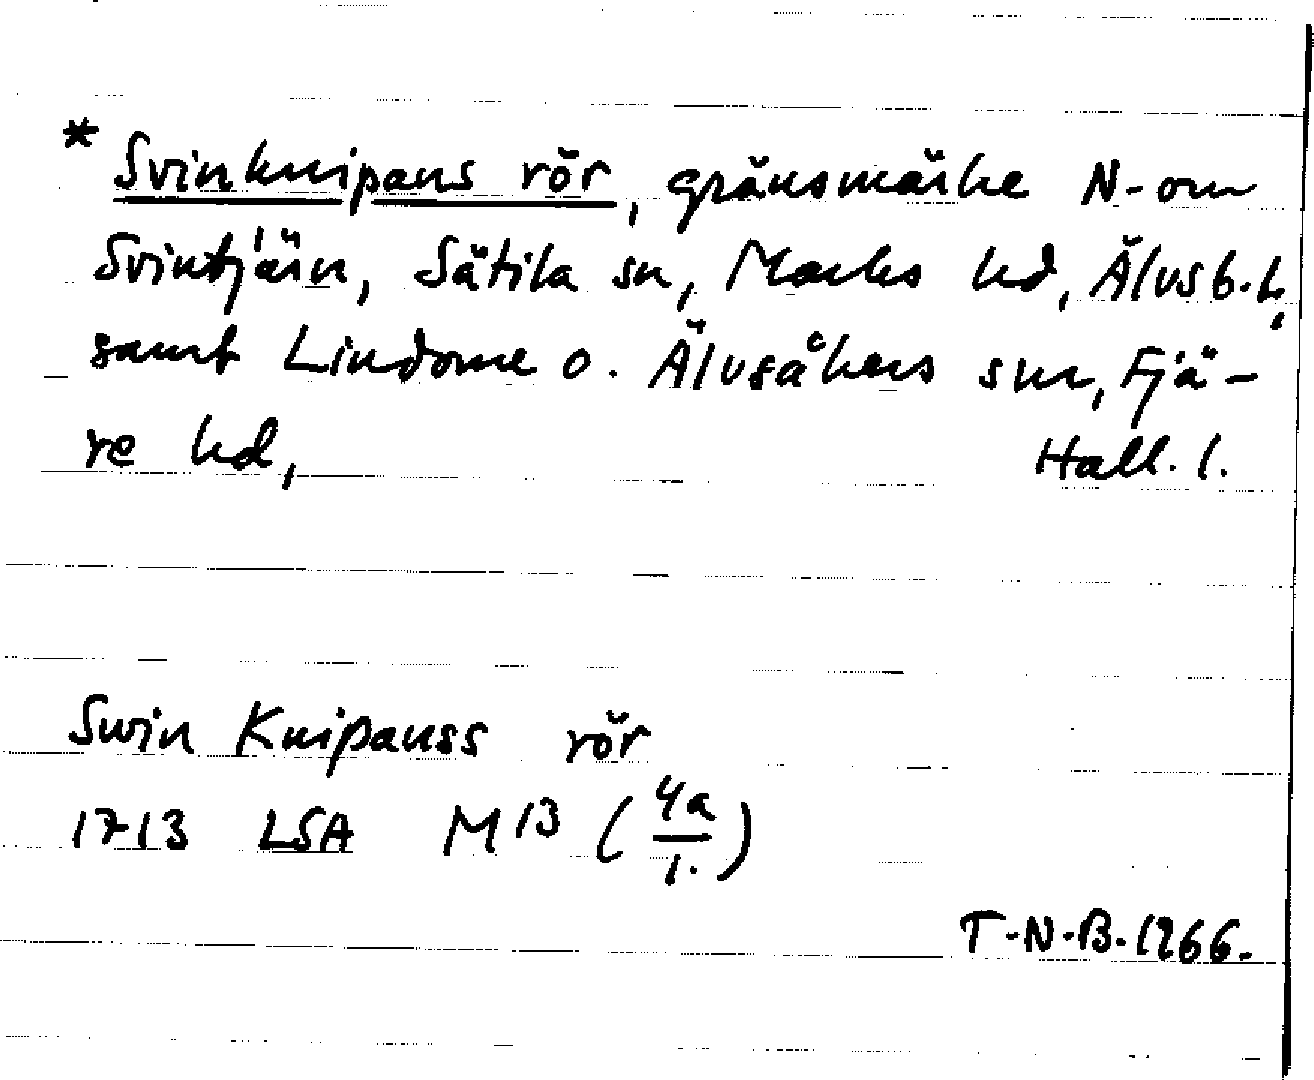 * Svinknipans rör, gränsmärke N-om
Svintjärn, Sätila sn, Marks hd, Älvsb. l,
samt Lindome o. Älvsåkers snr, Fjä-
re hd, Hall. l.
Swin Knipanss rör
1713 LSA M 13 (4a/1.)
T-N-B. 1966.